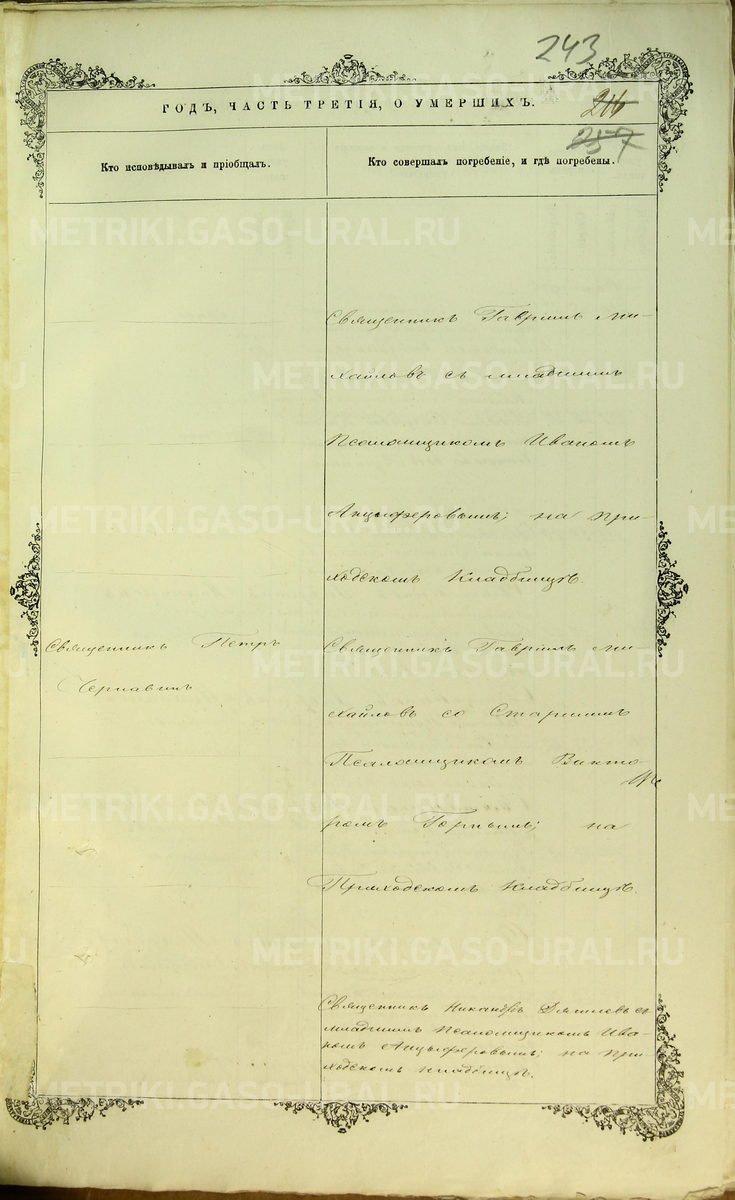 243
ГОДЪ, ЧАСТЬ ТРЕТІЯ, О УМЕРШИХЪ.
257
Кто исповѣдывалъ и пріобщалъ.
Кто совершалъ погребеніе, и гдѣ погребены.
Священникъ Гавріилъ Ми-
хайловъ съ младшимъ
Псаломщикомъ Иваномъ
Анцыферовымъ; на При-
ходскомъ Кладбищѣ.
Священникъ Петръ
Чернавинъ
Священникъ Гавріилъ Ми-
хайловъ со Старшимъ
Псаломщикомъ Викто-
ромъ Горнымъ; на
Приходскомъ Кладбищѣ.
Священникъ Никандръ съ
младшимъ Псаломщикомъ Ива-
номъ Анцыферовымъ; на при-
ходскомъ кладбищѣ.
METRIKI.GASO-URAL.RU